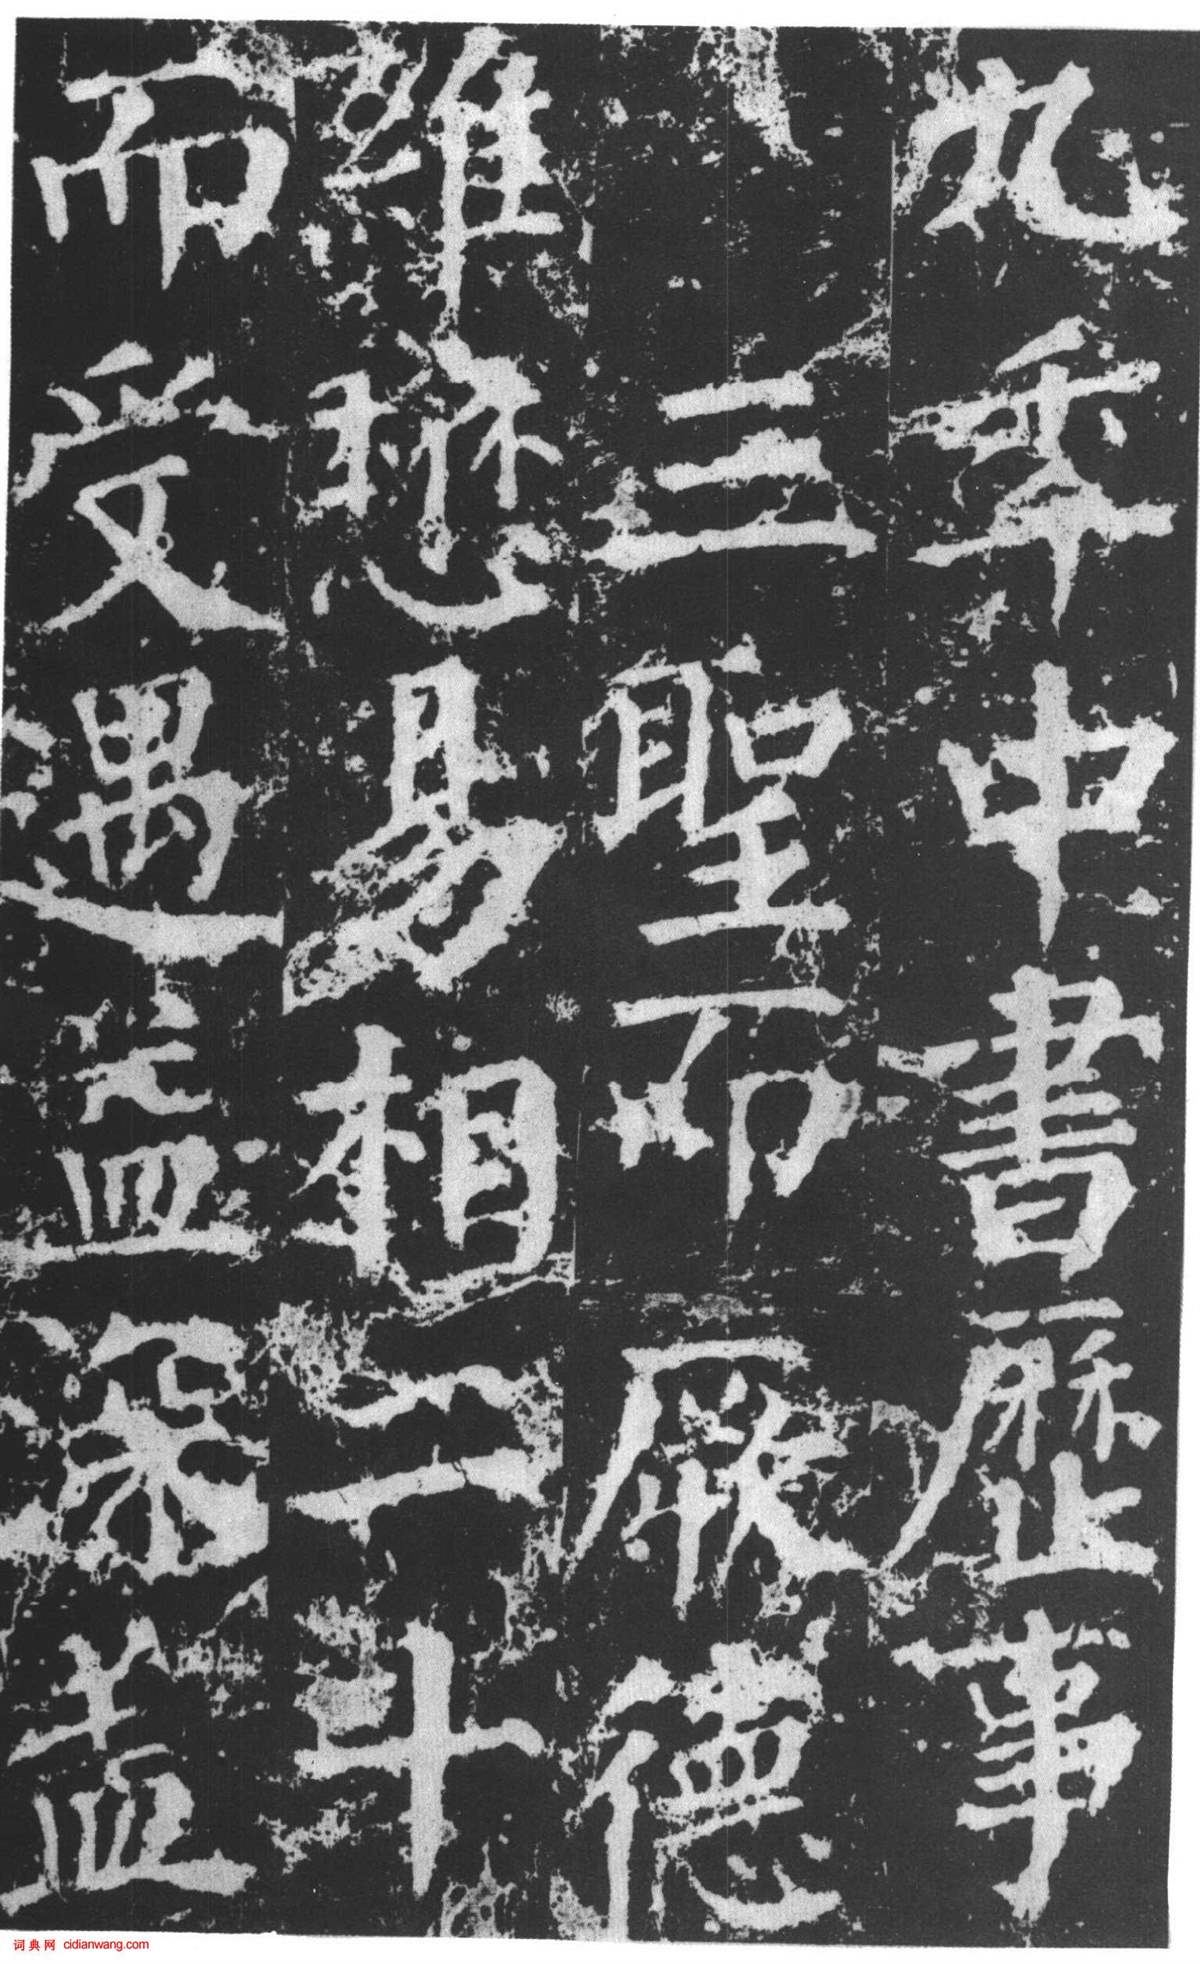 九年中書歷事
三聖而厥德
維懋易相二十
而受遇益深盖
词典网 cidianwang.com